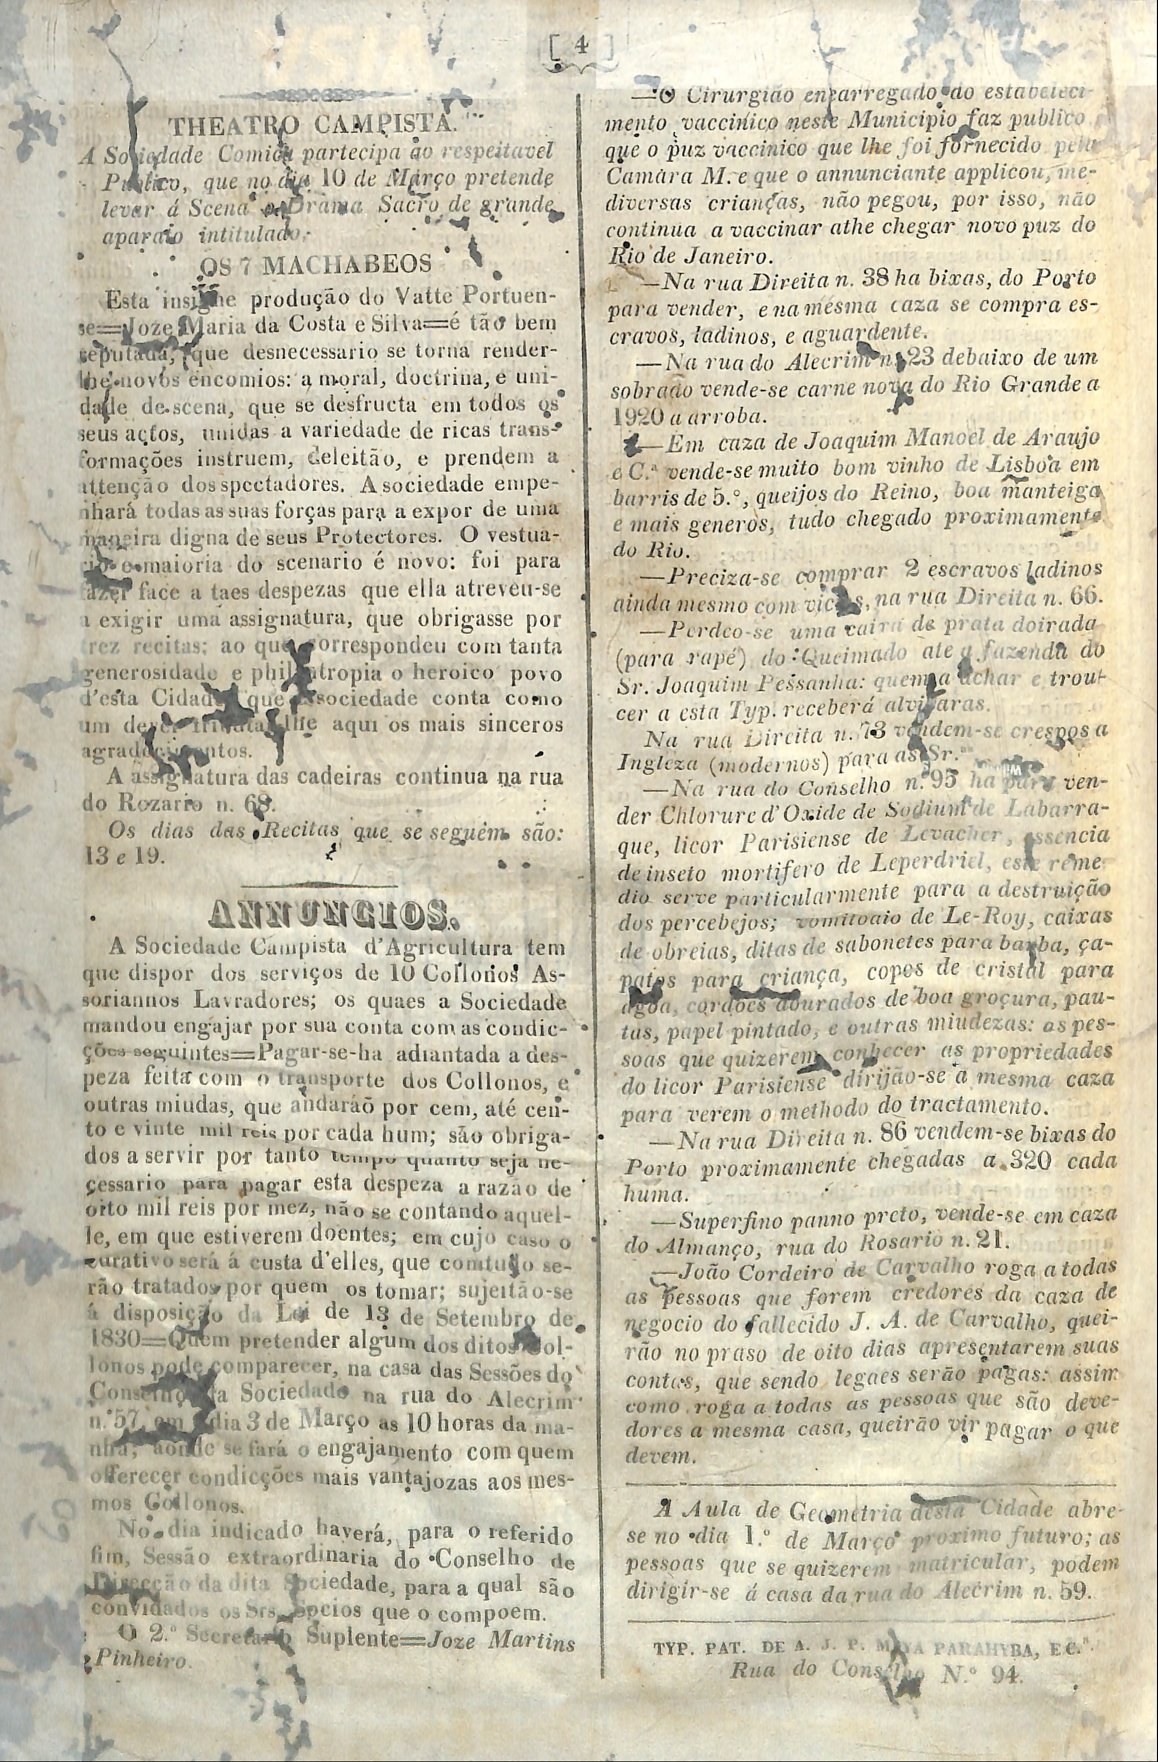 [ 4 ]
THEATRO CAMPISTA.
A Sociedade Comica partecipa ao respeitavel
Publico, que no dia 10 de Março pretende
levar á Scena o Drama Sacro de grande
aparato intitulado:
OS 7 MACHABEOS
Esta insigne produção do Vatte Portuen-
se=Joze Maria da Costa e Silva=é tão bem
reputada, que desnecessario se torna render-
lhe novos encomios: a moral, doctrina, e uni-
dade de scena, que se desfructa em todos os
seus actos, unidas a variedade de ricas trans-
formações instruem, deleitão, e prendem a
attenção dos spectadores. A sociedade empe-
nhará todas as suas forças para a expor de uma
maneira digna de seus Protectores. O vestua-
rio e maioria do scenario é novo: foi para
fazer face a taes despezas que ella atreveu-se
a exigir uma assignatura, que obrigasse por
trez recitas; ao que correspondeu com tanta
generosidade e philantropia o heroico povo
d'esta Cidade, que a sociedade conta como
um dever tributar-lhe aqui os mais sinceros
agradecimentos.
A assignatura das cadeiras continua na rua
do Rozario n. 68.
Os dias das Recitas que se seguem são:
13 e 19.
ANNUNCIOS.
A Sociedade Campista d'Agricultura tem
que dispor dos serviços de 10 Collonos As-
soriannos Lavradores; os quaes a Sociedade
mandou engajar por sua conta com as condic-
ções seguintes=Pagar-se-ha adiantada a des-
peza feita com o transporte dos Collonos, e
outras miudas, que andaráõ por cem, até cen-
to e vinte mil reis por cada hum; são obriga-
dos a servir por tanto tempo quanto seja ne-
cessario para pagar esta despeza a razão de
oito mil reis por mez, não se contando aquel-
le, em que estiverem doentes; em cujo caso o
curativo será á custa d'elles, que comtudo se-
rão tratados por quem os tomar; sujeitão-se
á disposição da Lei de 13 de Setembro de
1830=Quem pretender algum dos ditos Col-
lonos pode comparecer, na casa das Sessões do
Conselho da Sociedade na rua do Alecrim
n. 57, em o dia 3 de Março as 10 horas da ma-
nhã, aonde se fará o engajamento com quem
offerecer condicções mais vantajozas aos mes-
mos Collonos.
No dia indicado haverá, para o referido
fim, Sessão extraordinaria do Conselho de
Direcção da dita Sociedade, para a qual são
convidados os Srs. Socios que o compoem.
O 2.º Secretario Suplente=Joze Martins
Pinheiro.
—O Cirurgião encarregado do estabeleci-
mento vaccinico neste Municipio faz publico
que o puz vaccinico que lhe foi fornecido pela
Camara M. e que o annunciante applicou, me-
diversas crianças, não pegou, por isso, não
continua a vaccinar athe chegar novo puz do
Rio de Janeiro.
—Na rua Direita n. 38 ha bixas, do Porto
para vender, e na mesma caza se compra es-
cravos, ladinos, e aguardente.
—Na rua do Alecrim n. 23 debaixo de um
sobrado vende-se carne nova do Rio Grande a
1920 a arroba.
—Em caza de Joaquim Manoel de Araujo
e C.ª vende-se muito bom vinho de Lisboa em
barris de 5.º, queijos do Reino, boa manteiga
e mais generos, tudo chegado proximamente
do Rio.
—Preciza-se comprar 2 escravos ladinos
ainda mesmo com vicios, na rua Direita n. 66.
—Perdeo-se uma caixa de prata doirada
(para rapé) do Queimado ate a fazenda do
Sr. Joaquim Pessanha: quem a achar e trou-
cer a esta Typ. receberá alviçaras.
Na rua Direita n. 73 vendem-se crespos a
Ingleza (modernos) para as Sr.as
—Na rua do Conselho n. 95 ha para ven-
der Chlorure d'Oxide de Sodium de Labarra-
que, licor Parisiense de Levacher, essencia
de inseto mortifero de Leperdriel, este reme-
dio serve particularmente para a destruição
dos percebejos; vomitoaio de Le-Roy, caixas
de obreias, ditas de sabonetes para barba, ça-
patos para criança, copos de cristal para
agoa, cordões dourados de boa groçura, pau-
tas, papel pintado, e outras miudezas: as pes-
soas que quizerem conhecer as propriedades
do licor Parisiense dirijão-se a mesma caza
para verem o methodo do tractamento.
—Na rua Direita n. 86 vendem-se bixas do
Porto proximamente chegadas a 320 cada
huma.
—Superfino panno preto, vende-se em caza
do Almanço, rua do Rosario n. 21.
—João Cordeiro de Carvalho roga a todas
as pessoas que forem credores da caza de
negocio do fallecido J. A. de Carvalho, quei-
rão no praso de oito dias apresentarem suas
contas, que sendo legaes serão pagas: assim
como roga a todas as pessoas que são deve-
dores a mesma casa, queirão vir pagar o que
devem.
A Aula de Geometria desta Cidade abre-
se no dia 1.º de Março proximo futuro; as
pessoas que se quizerem matricular, podem
dirigir-se á casa da rua do Alecrim n. 59.
TYP. PAT. DE A. J. P. MAYA PARAHYBA, E C.ª.
Rua do Conselho N.º 94.